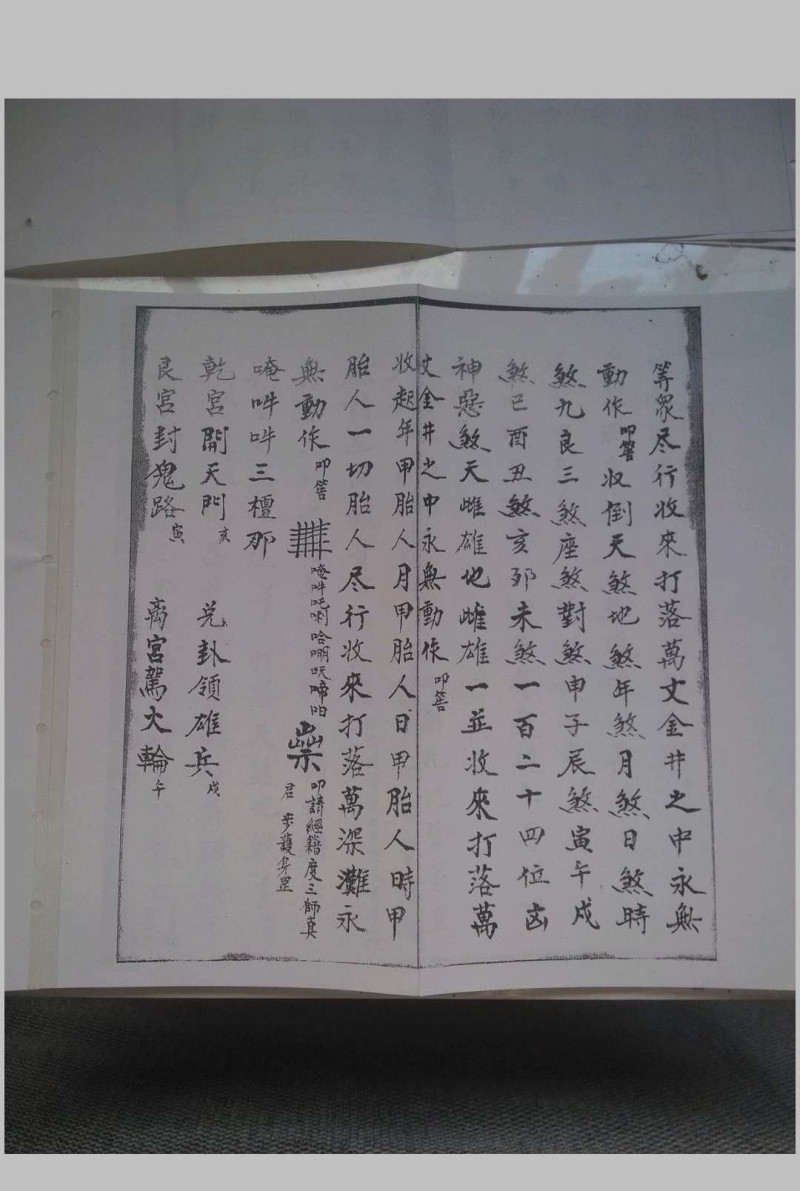 等眾尽行收來打落萬丈金井之中永無
動作叩筶收倒天煞地煞年煞月煞日煞時
煞九良三煞座煞對煞申子辰煞寅午戍
煞巳酉丑煞亥卯未煞一百二十四位凶
神惡煞天雌雄地雌雄一並收來打落萬
丈金井之中永無動作叩筶
收起年甲胎人月甲胎人日甲胎人時甲
胎人一切胎人尽行收來打落萬深灘永
無動作叩筶
唵吽吽三檀那
叩請經籍度三師真
君步護身罡
乾宮開天門亥
兌卦領雄兵戍
艮宮封鬼路寅
离宮駕火輪午